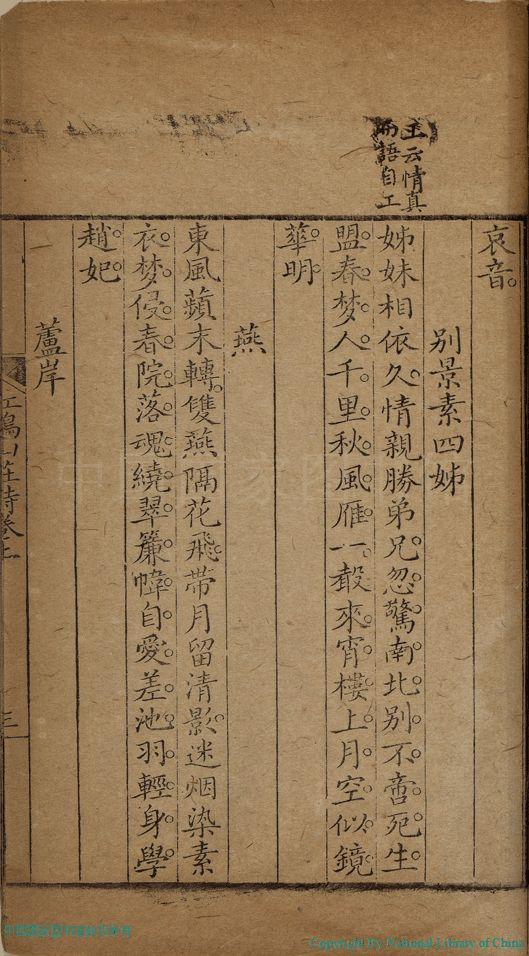 王云情真
而語自工
哀音
别景素四姊
姊妹相依久情親勝弟兄忽驚南北别不啻死生
盟春梦人千里秋風雁一声來宵樓上月空似鏡
華明
燕
東風蘋末轉雙燕隔花飛帶月留清影迷烟染素
衣梦侵春院落魂繞翠簾幃自愛差池羽輕身學
趙妃
蘆岸
山莊詩卷上
三
Copyright By National Library of China